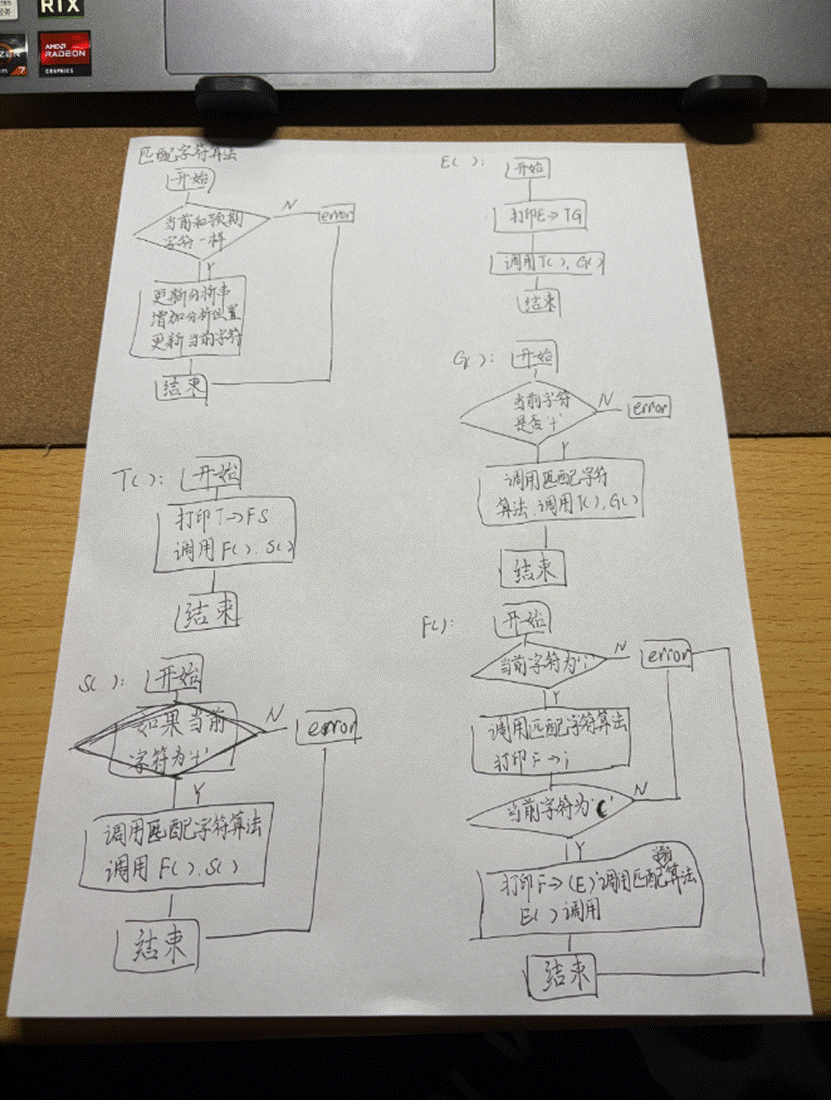 RTX
AMD
RADEON
GRAPHICS
匹配字符算法
开始
当前和预期
字符一样
N
error
Y
更新分析串
增加分析位置
更新当前字符
结束
T():
开始
打印T→FS
调用F().S()
结束
S():
开始
如果当前
字符为
N
error
Y
调用匹配字符算法
调用F().S()
结束
E():
开始
打印E→TG
调用T(),G()
结束
G():
开始
当前字符
是否'+'
N
error
Y
调用匹配字符
算法,调用T(),G()
结束
F():
开始
当前字符为'i'
N
error
Y
调用匹配字符算法
打印F→i
当前字符为'('
N
Y
打印F→(E)调用匹配算法
E()调用
结束